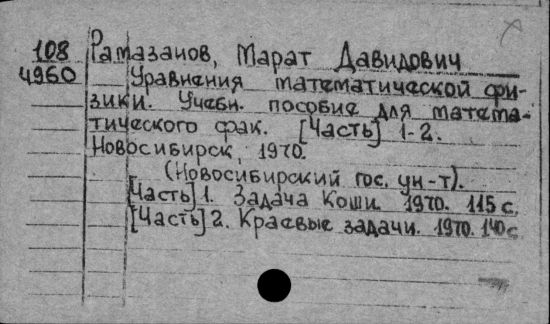 108 Рамазанов, Марат Давидович
4960 Уравнения математической фи-
зики. Учебн. пособие для матема-
тического фак. [Часть] 1-2.
Новосибирск, 1970.
(Новосибирский гос. ун-т).
[Часть] 1. Задача Коши. 1970. 115 с.
[Часть] 2. Краевые задачи. 1970. 140 с